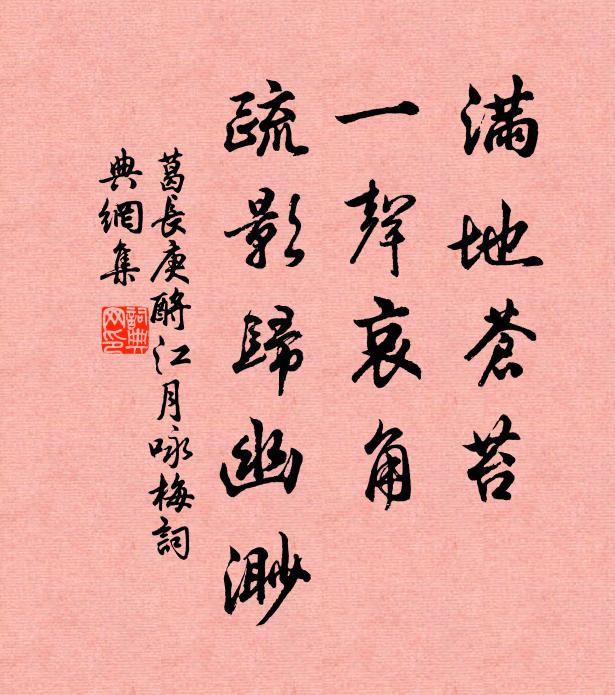 满地蒼苔
一聲哀角
疏影歸幽渺
葛長庚酹江月咏梅詞
典網集
詞典網印